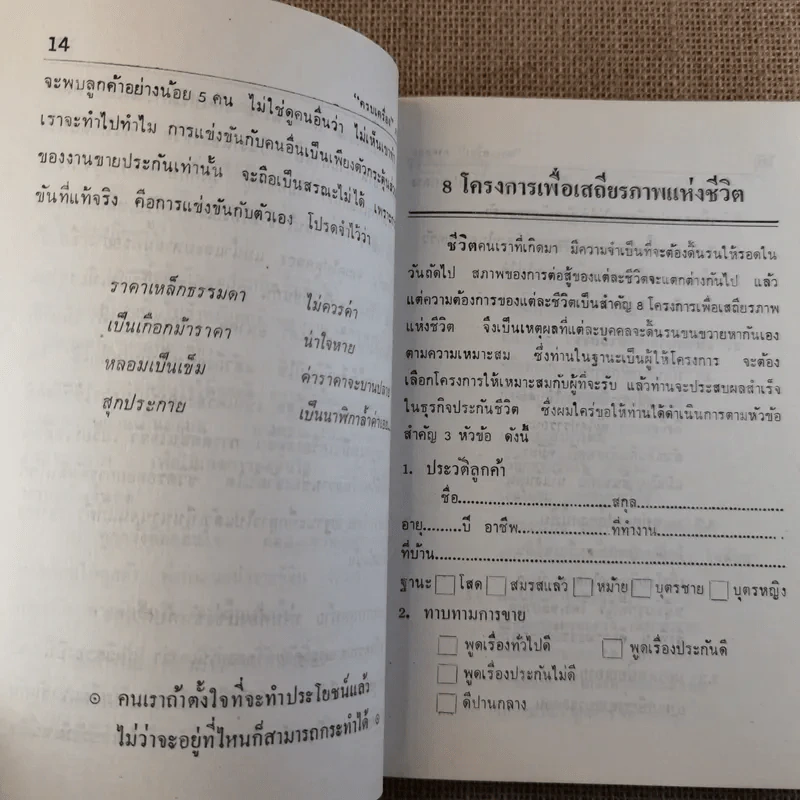 14
"ครบเครื่อง"
จะพบลูกค้าอย่างน้อย 5 คน ไม่ใช่ดูคนอื่นว่า ไม่เห็นเขาทำ
เราจะทำไปทำไม การแข่งขันกับคนอื่นเป็นเพียงตัวกระตุ้น
ของงานขายประกันเท่านั้น จะถือเป็นสรณะไม่ได้ เพราะ
ขันที่แท้จริง คือการแข่งขันกับตัวเอง โปรดจำไว้ว่า
ราคาเหล็กธรรมดา ไม่ควรค่า
เป็นเกือกม้าราคา น่าใจหาย
หลอมเป็นเข็ม ค่าราคาจะบานปลาย
สุกประกาย เป็นนาฬิกาล้ำค่า
๏ คนเราถ้าตั้งใจที่จะทำประโยชน์แล้ว
ไม่ว่าจะอยู่ที่ไหนก็สามารถกระทำได้ ๏
8 โครงการเพื่อเสถียรภาพแห่งชีวิต
ชีวิตคนเราที่เกิดมา มีความจำเป็นที่จะต้องดิ้นรนให้รอดใน
วันถัดไป สภาพของการต่อสู้ของแต่ละชีวิตจะแตกต่างกันไป แล้ว
แต่ความต้องการของแต่ละชีวิตเป็นสำคัญ 8 โครงการเพื่อเสถียรภาพ
แห่งชีวิต จึงเป็นเหตุผลที่แต่ละบุคคลจะดิ้นรนขนขวายหากันเอง
ตามความเหมาะสม ซึ่งท่านในฐานะเป็นผู้ให้โครงการ จะต้อง
เลือกโครงการให้เหมาะสมกับผู้ที่จะรับ แล้วท่านจะประสบผลสำเร็จ
ในธุรกิจประกันชีวิต ซึ่งผมใคร่ขอให้ท่านได้ดำเนินการตามหัวข้อ
สำคัญ 3 หัวข้อ ดังนี้
1. ประวัติลูกค้า
ชื่อ..............................สกุล..............................
อายุ.........ปี อาชีพ..................ที่ทำงาน..................
ที่บ้าน............................................................
ฐานะ โสด สมรสแล้ว หม้าย บุตรชาย บุตรหญิง
2. ทาบทามการขาย
พูดเรื่องทั่วไปดี พูดเรื่องประกันดี
พูดเรื่องประกันไม่ดี
ดีปานกลาง